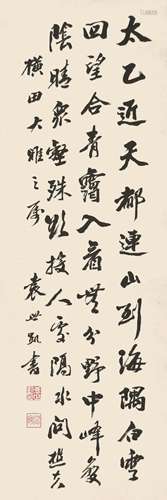 太乙近天都連山到海隅白雲
回望合青靄入看無分野中峰變
陰晴衆壑殊欲投人處隔水問樵夫
橫田大雅之屬
袁世凱書